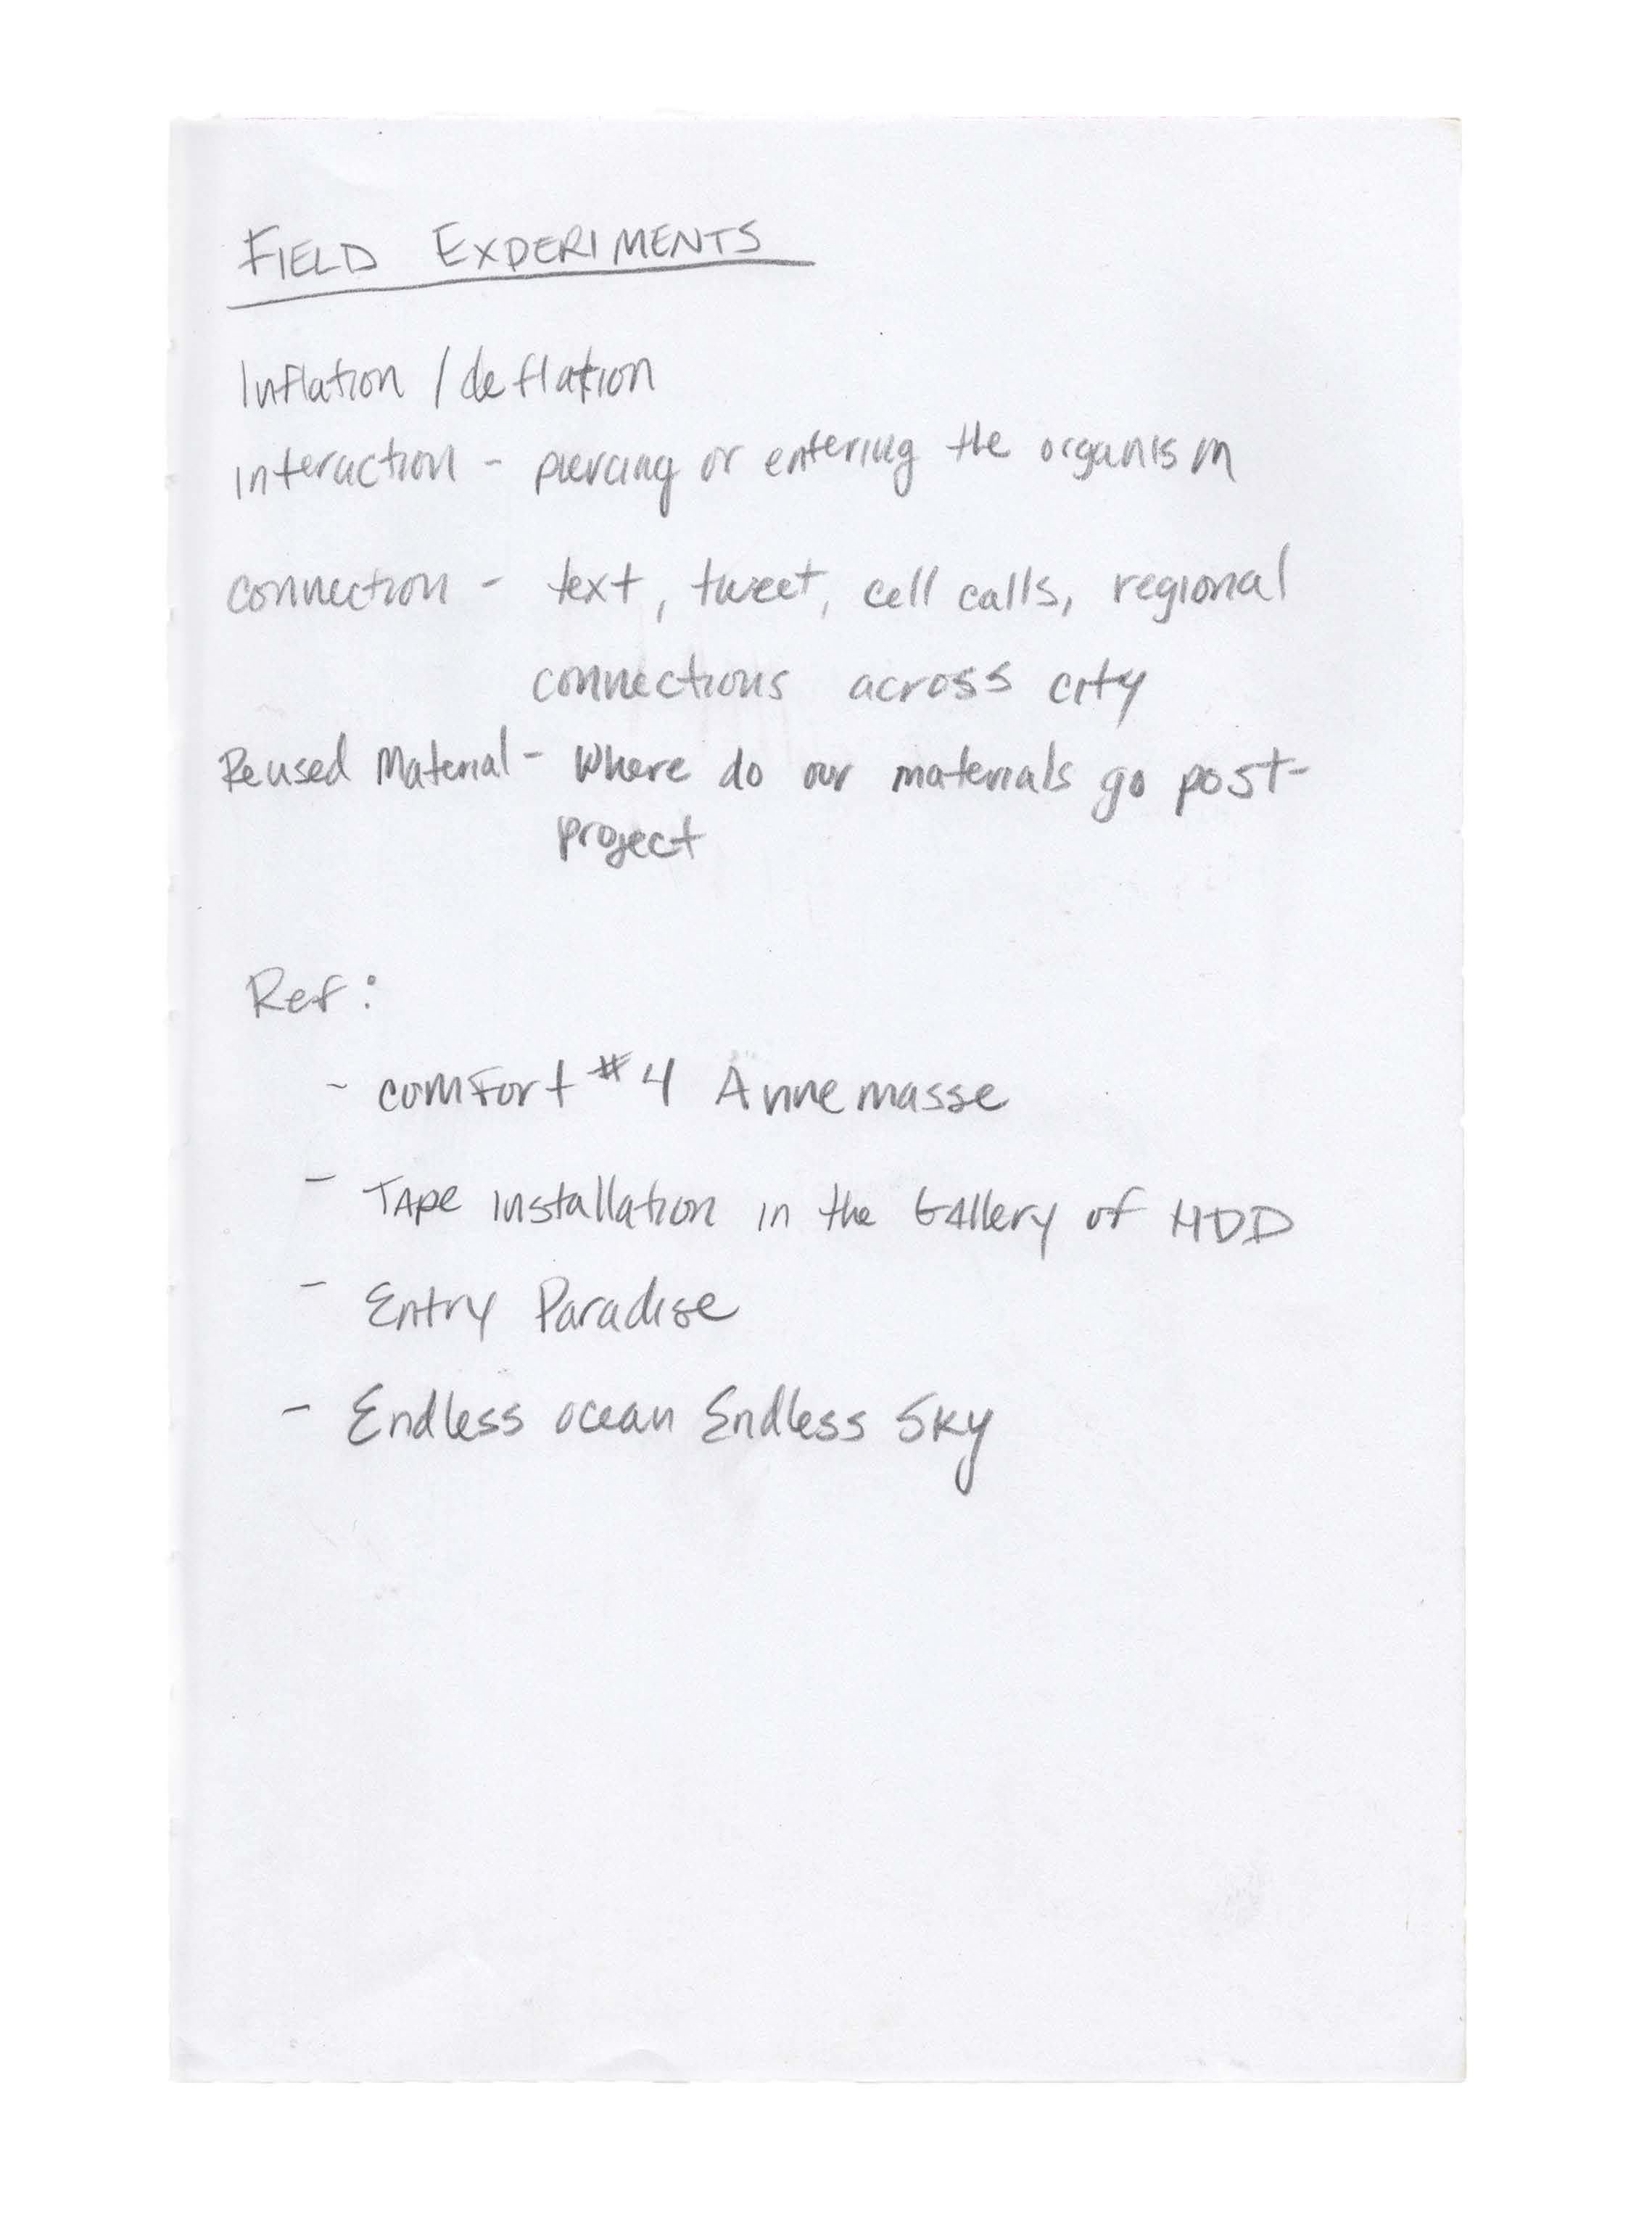 FIELD EXPERIMENTS
Inflation / deflation
interaction - piercing or entering the organism
connection - text, tweet, cell calls, regional
connections across city
Reused Material - Where do our materials go post-
project
Ref:
- comfort #4 Annemasse
- TAPE installation in the Gallery of HDD
- Entry Paradise
- Endless ocean Endless Sky